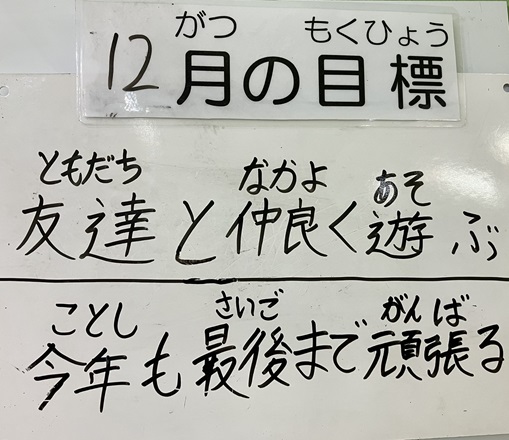 がつ もくひょう
12月の目標
ともだち なかよ あそ
友達と仲良く遊ぶ
ことし さいご がんば
今年も最後まで頑張る